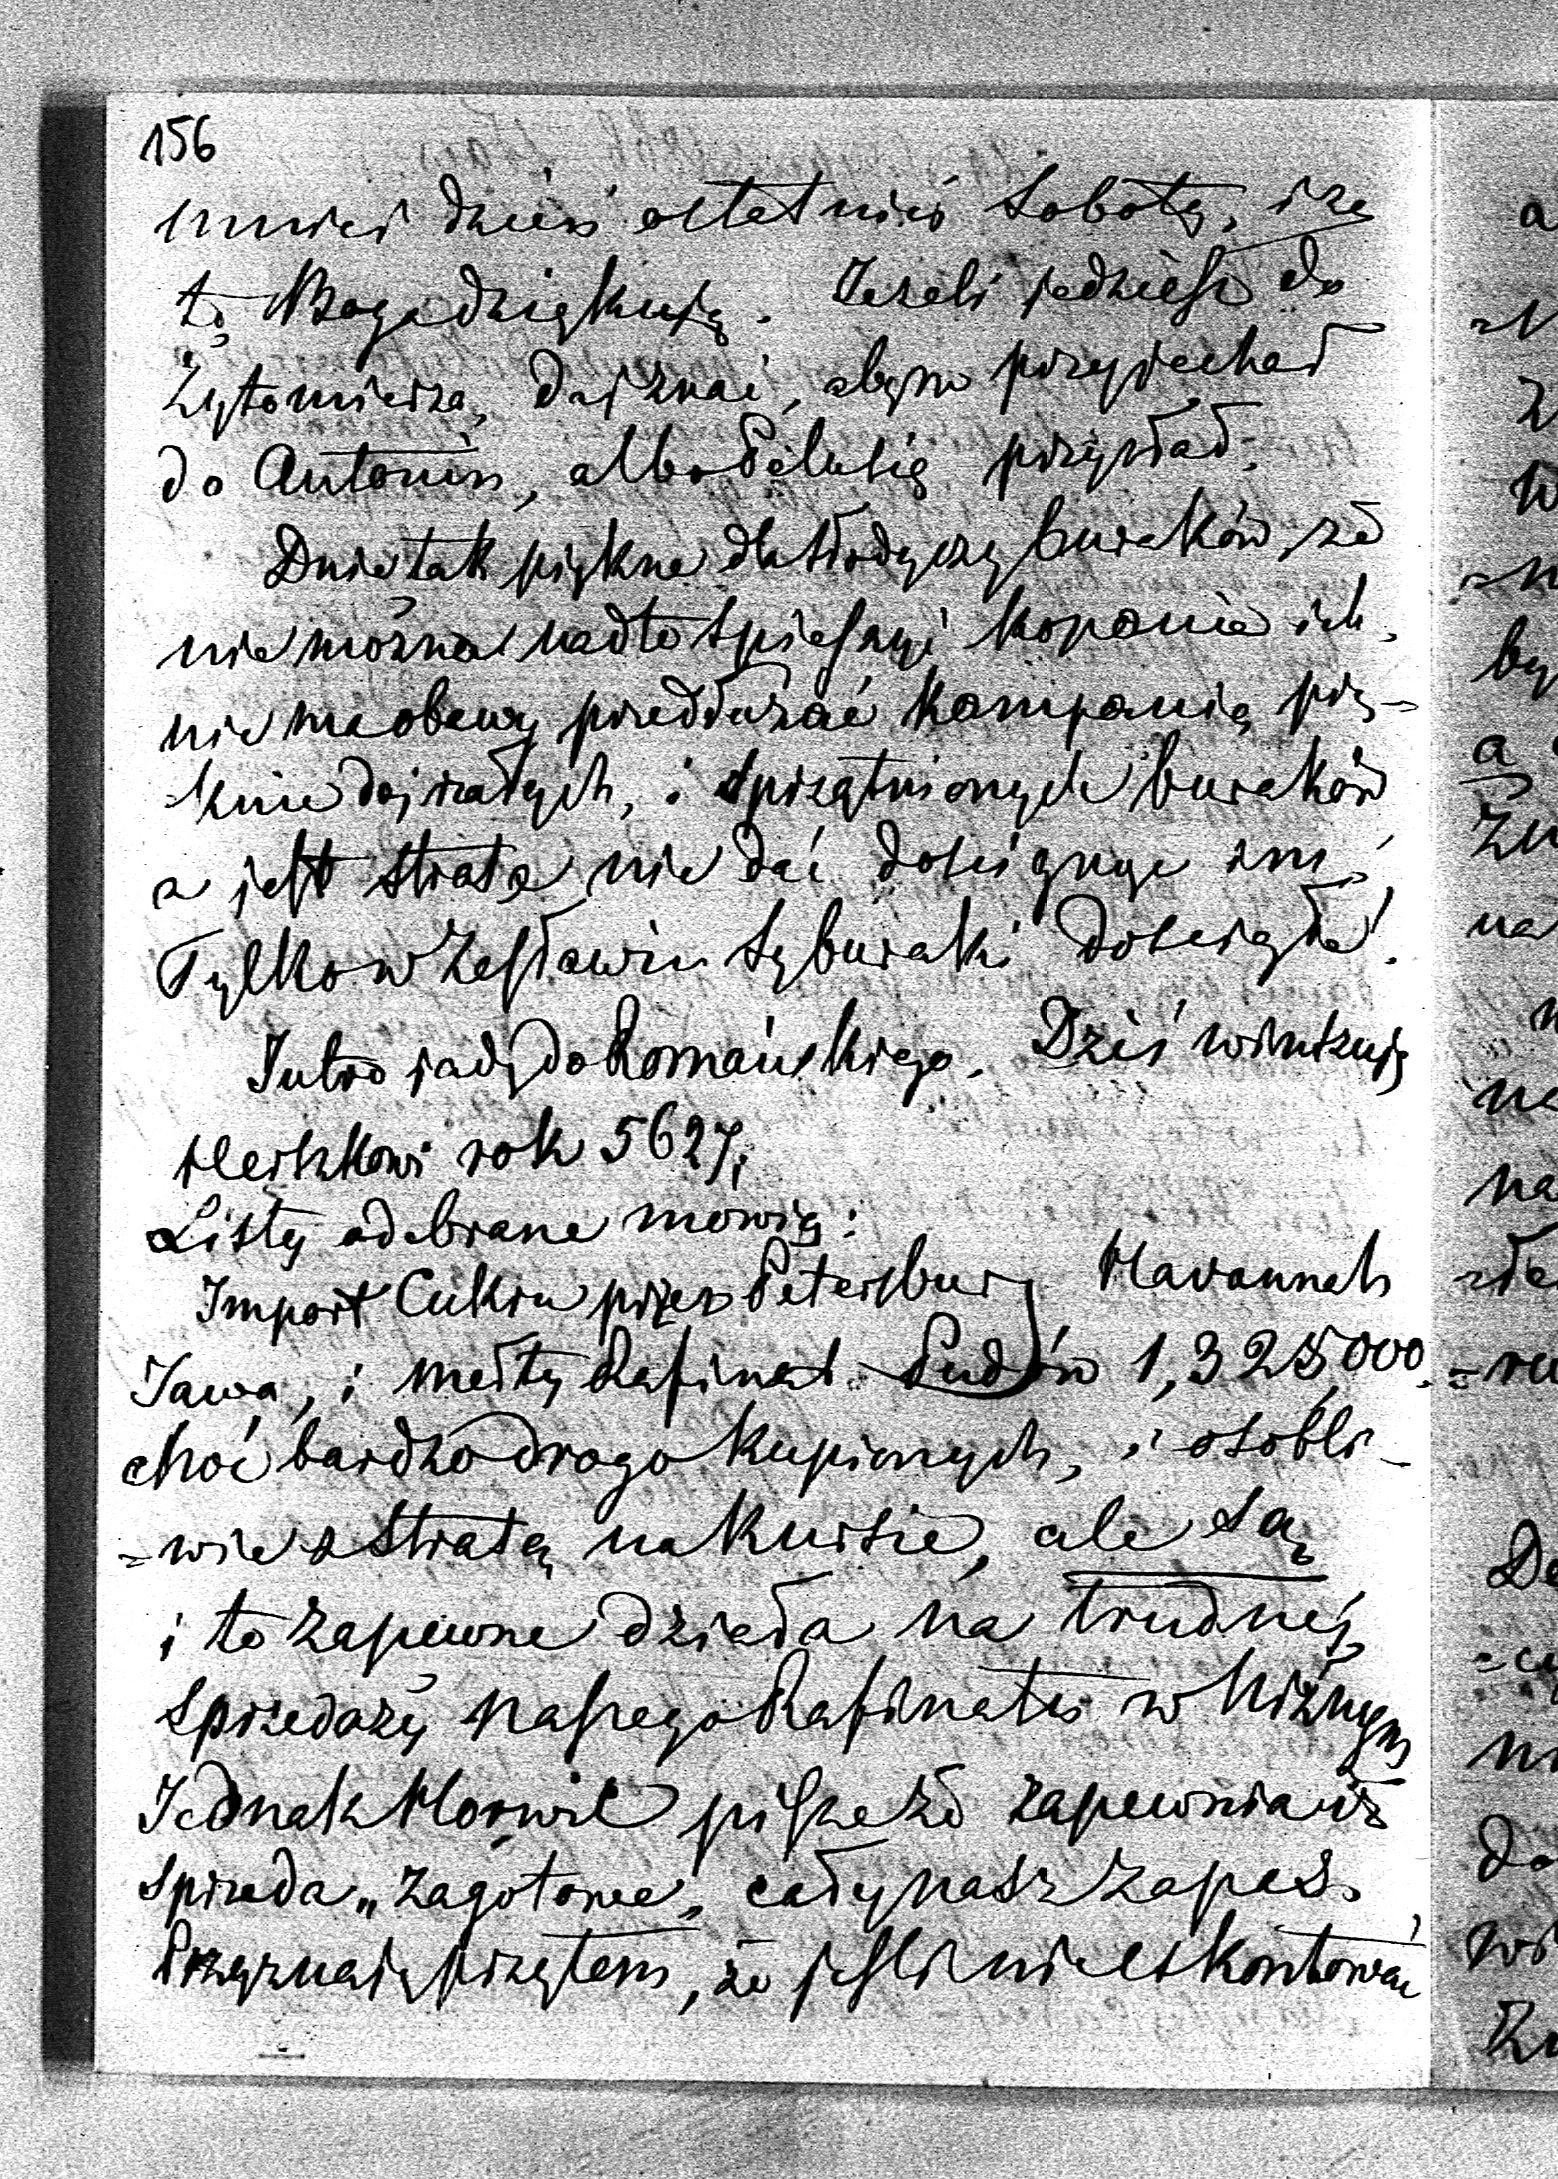 156
mnieś dzień ostatniś Sobotę, i za
to Bogu dziękuję. Jeżeli jedziesz do
Żytomierza, daj znać, abym przyjechał
do Antonin, albo Felusię przysłał.
Dnie tak piękne dla słodyczy buraków, że
nie można nadto spieszyć kopania ich.
nie ma obawy przedłużać kampanią pię-
=knie dojrzałych, i sprzątnionych buraków
a jest stratą nie dać dosięgnąć im.
Tylko w Zasławiu są buraki dosięgłe.
Jutro jadę do Romańskiego. Dziś winszuję
Herszkowi rok 5627,
Listy odebrane mowią:
Import Cukru przez Petersburg Havannah
Jawa, i mełty Rafinat Pudów 1,325,000.
choć bardzo drogo kupionych, i osobli-
=wie z stratą na kursie, ale są
i to zapewne działa na trudnéj
sprzedaży naszego Rafinatu w Niżnym
Jednak Horwic pisze że zapewnia iż
sprzeda „zagotowe„ cały nasz zapas.
Przyznaję przytem, że jeśli nie eskontować